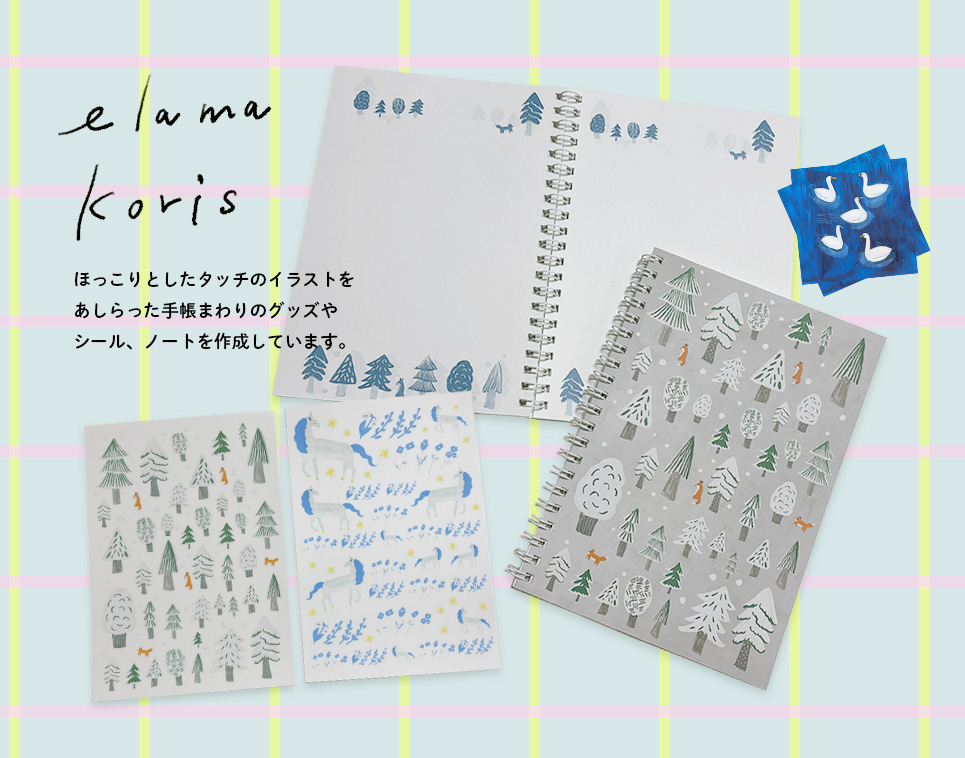 elama
koris
ほっこりとしたタッチのイラストを
あしらった手帳まわりのグッズや
シール、ノートを作成しています。